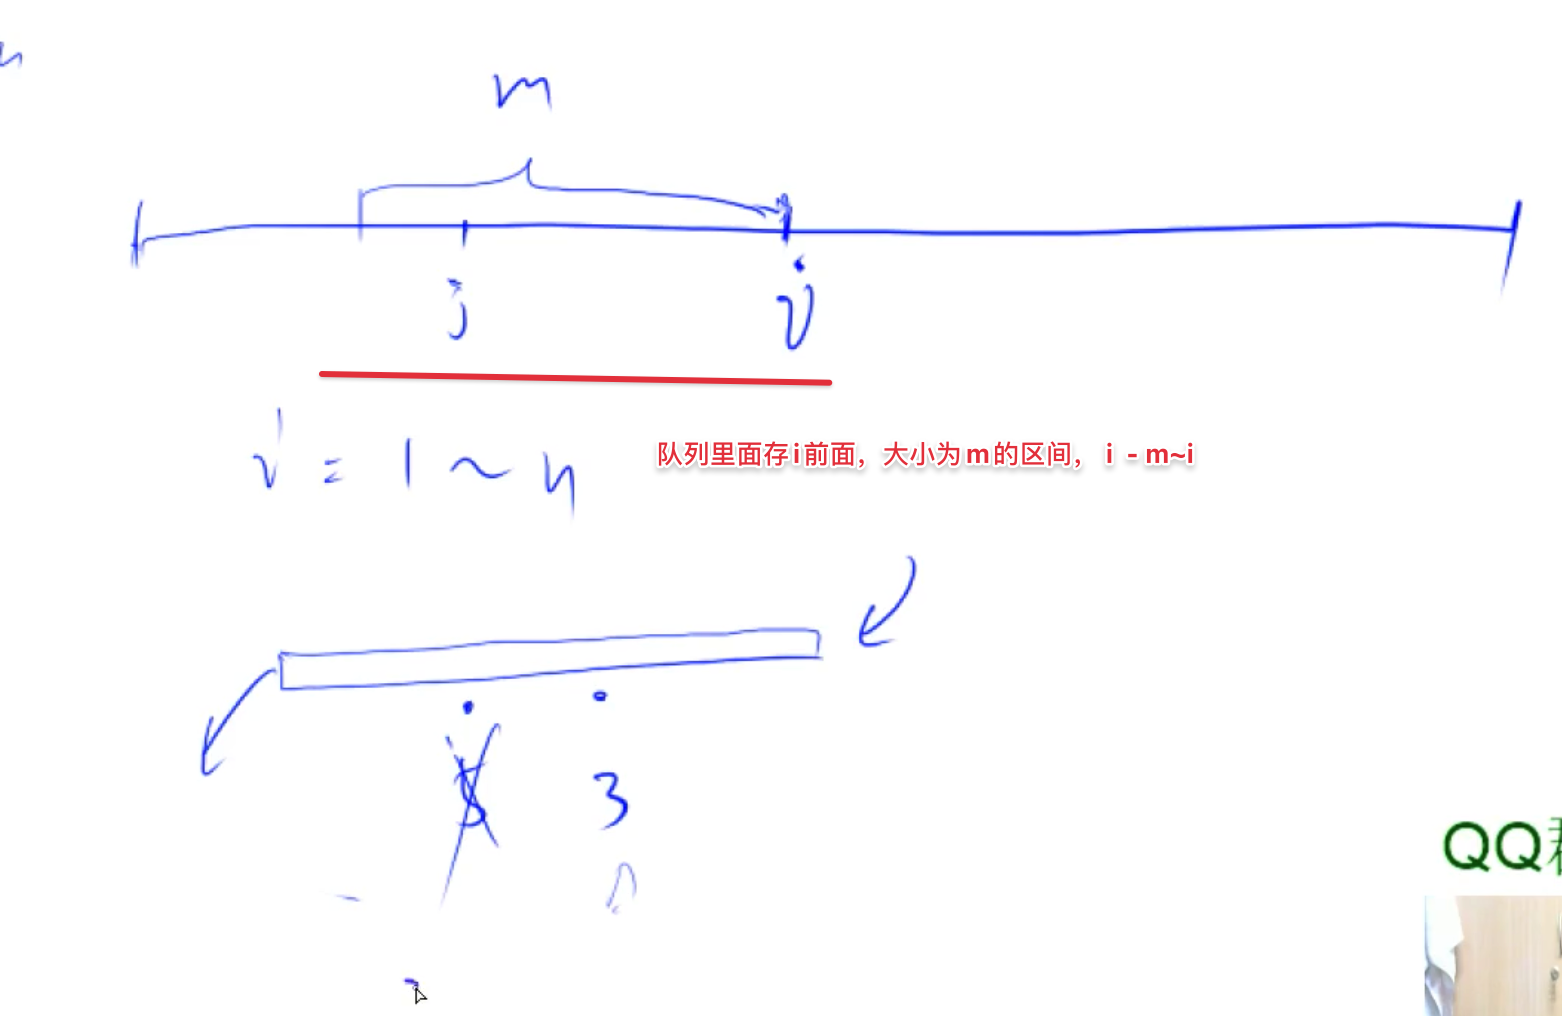 m
j
i
i = 1 ~ n
队列里面存i前面，大小为m的区间， i - m~i
5 3
QQ群